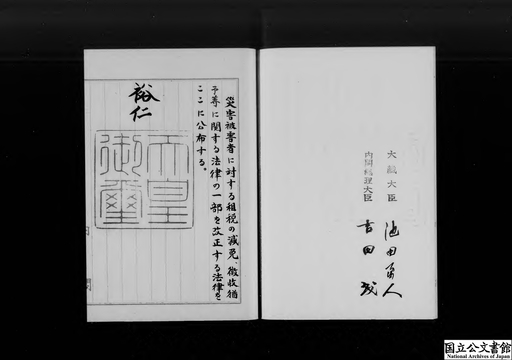 災害被害者に対する租税の減免、徴收猶
予等に関する法律の一部を改正する法律を
ここに公布する。
裕仁
天皇
御璽
大藏大臣 池田勇人
内閣総理大臣 吉田茂
国立公文書館
National Archives of Japan